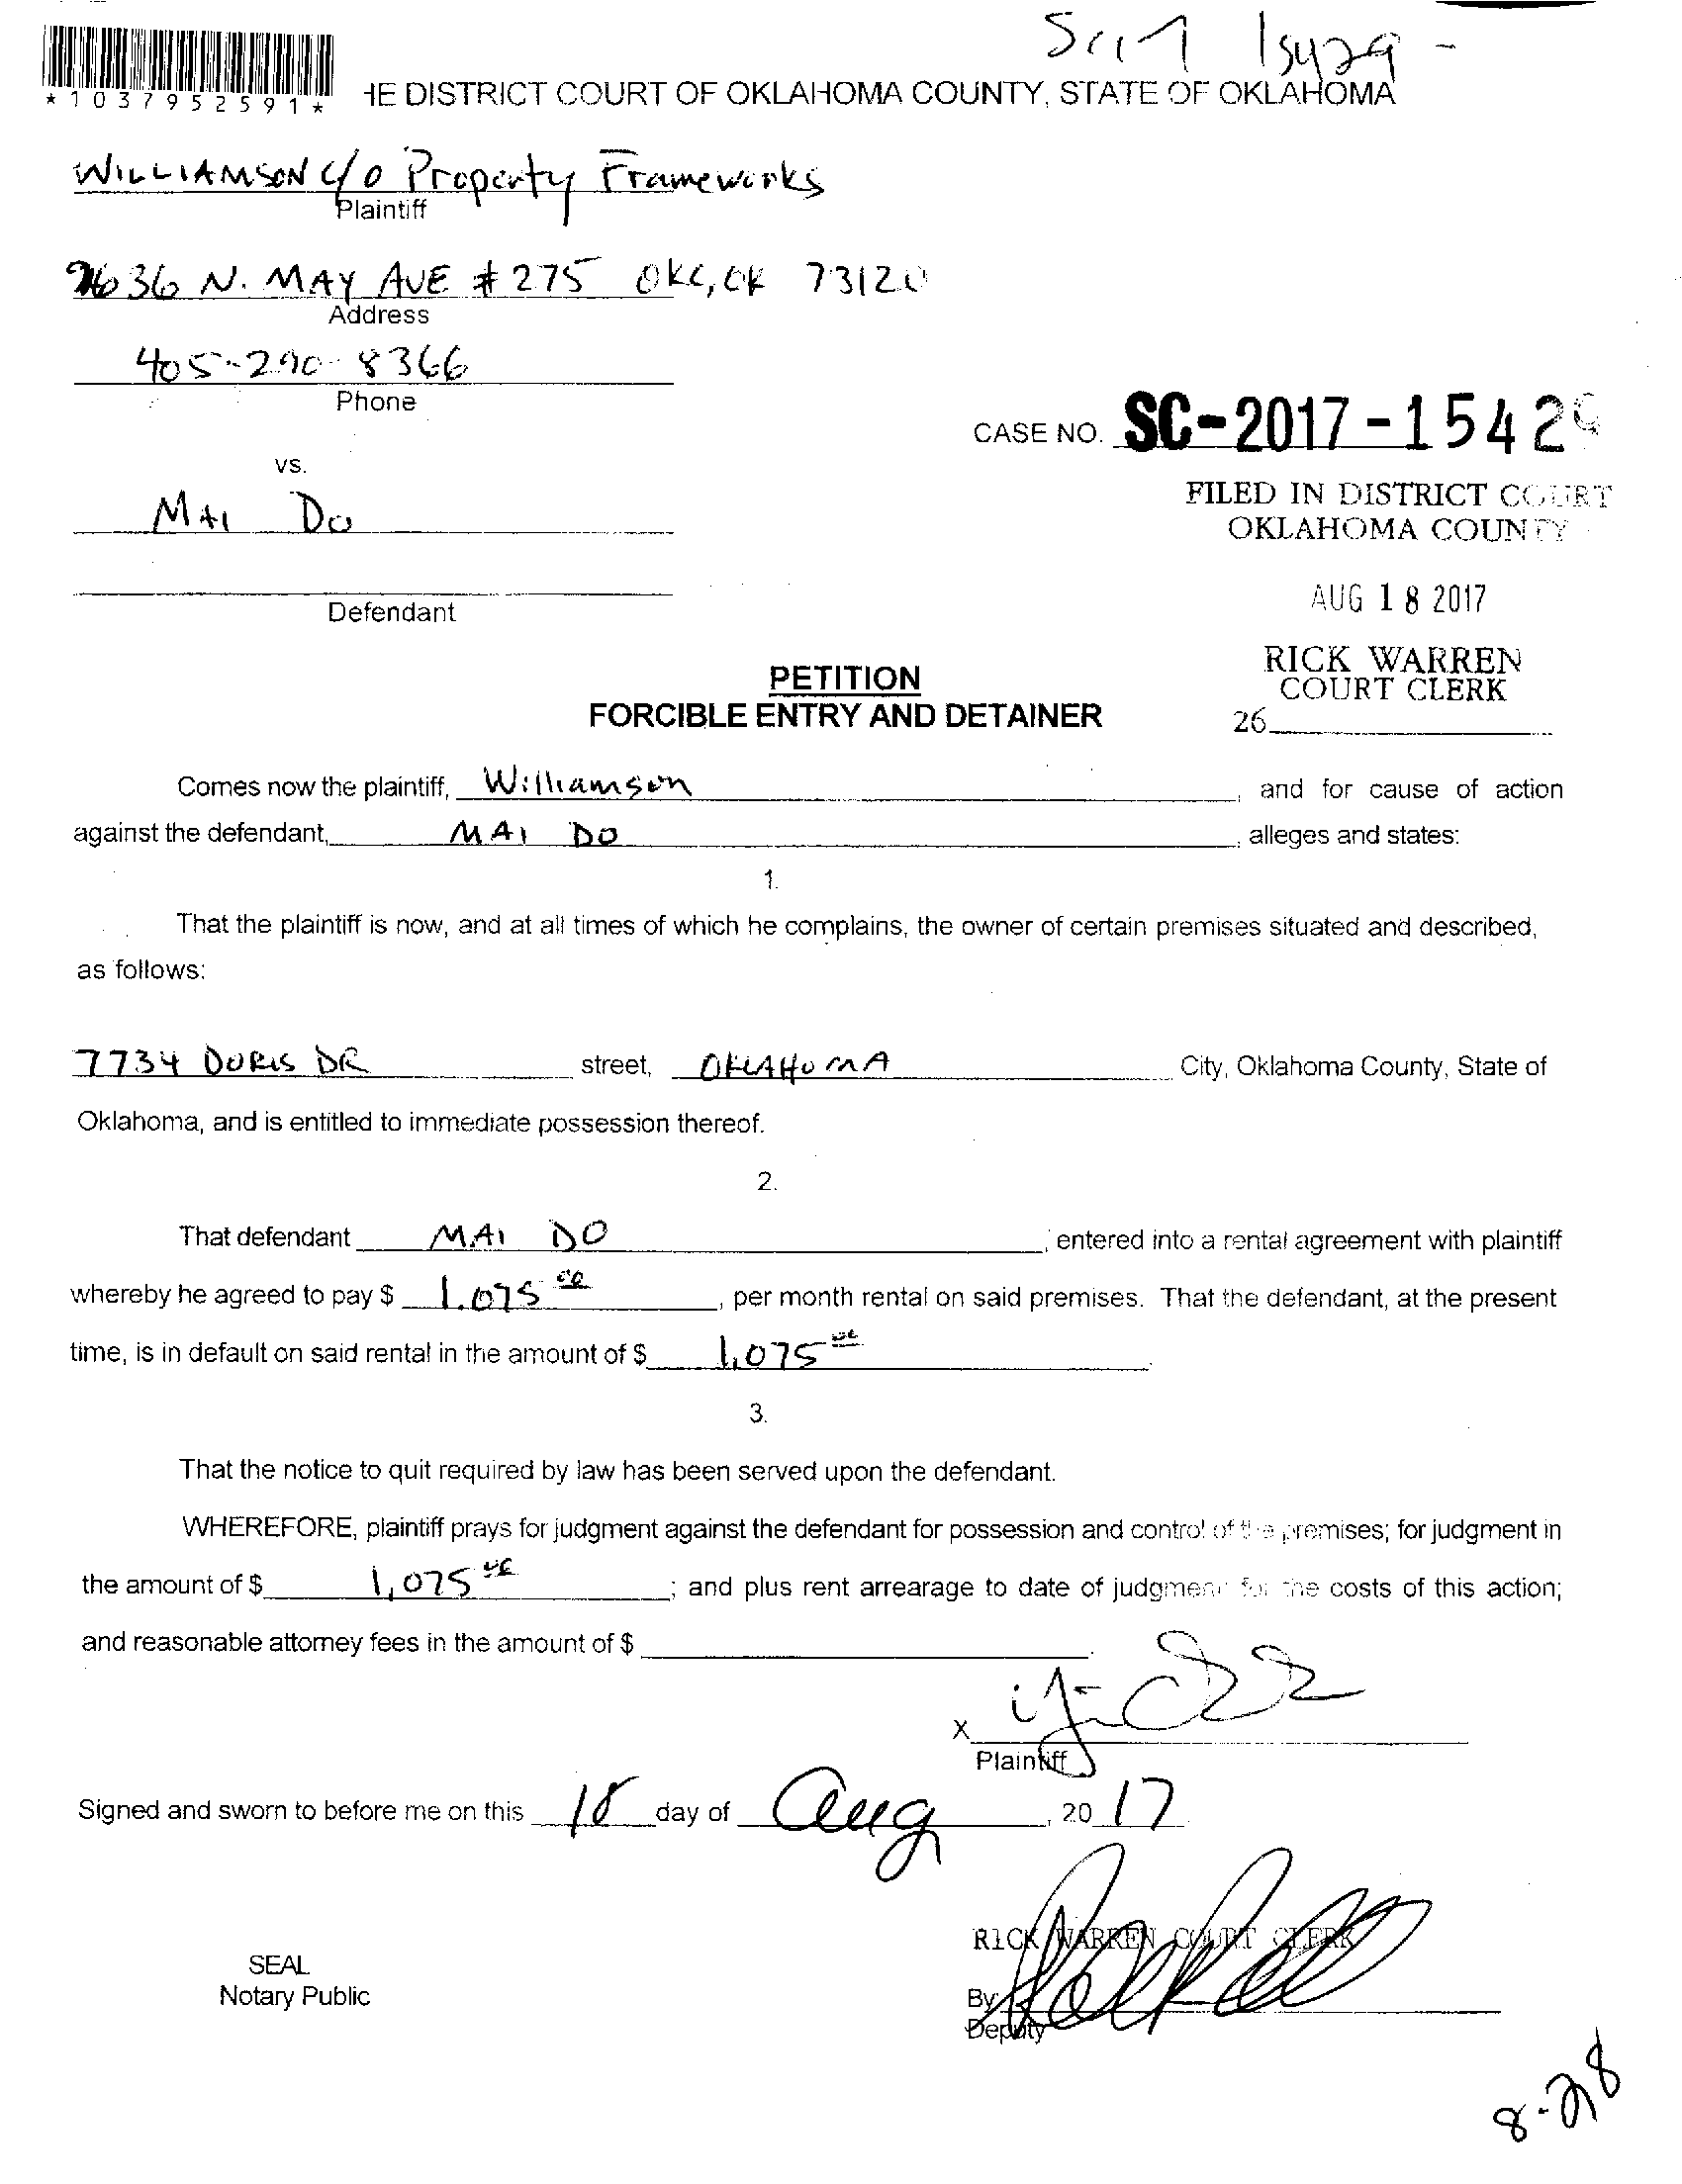 SC17 15429 -
*1037952591*
HE DISTRICT COURT OF OKLAHOMA COUNTY, STATE OF OKLAHOMA
WILLIAMSON c/o Property Frameworks
Plaintiff
9636 N. MAY AVE #275 OKC, OK 73120
Address
405-290-8366
Phone
CASE NO. SC-2017-15429
vs.
MAI DO
FILED IN DISTRICT COURT
OKLAHOMA COUNTY
Defendant
AUG 18 2017
RICK WARREN
COURT CLERK
26
PETITION
FORCIBLE ENTRY AND DETAINER
Comes now the plaintiff, Williamson, and for cause of action
against the defendant, MAI DO, alleges and states:
1.
That the plaintiff is now, and at all times of which he complains, the owner of certain premises situated and described,
as follows:
7734 DORIS DR street, OKLAHOMA City, Oklahoma County, State of
Oklahoma, and is entitled to immediate possession thereof.
2.
That defendant MAI DO, entered into a rental agreement with plaintiff
whereby he agreed to pay $ 1,075 00, per month rental on said premises. That the defendant, at the present
time, is in default on said rental in the amount of $ 1,075 00.
3.
That the notice to quit required by law has been served upon the defendant.
WHEREFORE, plaintiff prays for judgment against the defendant for possession and control of the premises; for judgment in
the amount of $ 1,075 00; and plus rent arrearage to date of judgment for the costs of this action;
and reasonable attorney fees in the amount of $.
X
Plaintiff
Signed and sworn to before me on this 18 day of Aug, 20 17
RICK WARREN COURT CLERK
SEAL
Notary Public
By
Deputy
8-28